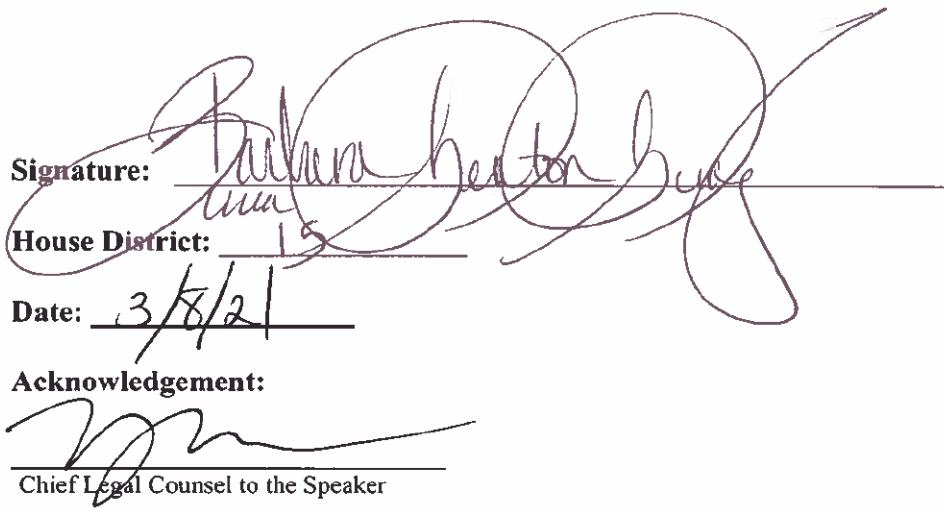 Signature: Barbara Seaton
House District: 15
Date: 3/8/21
Acknowledgement:
Chief Legal Counsel to the Speaker